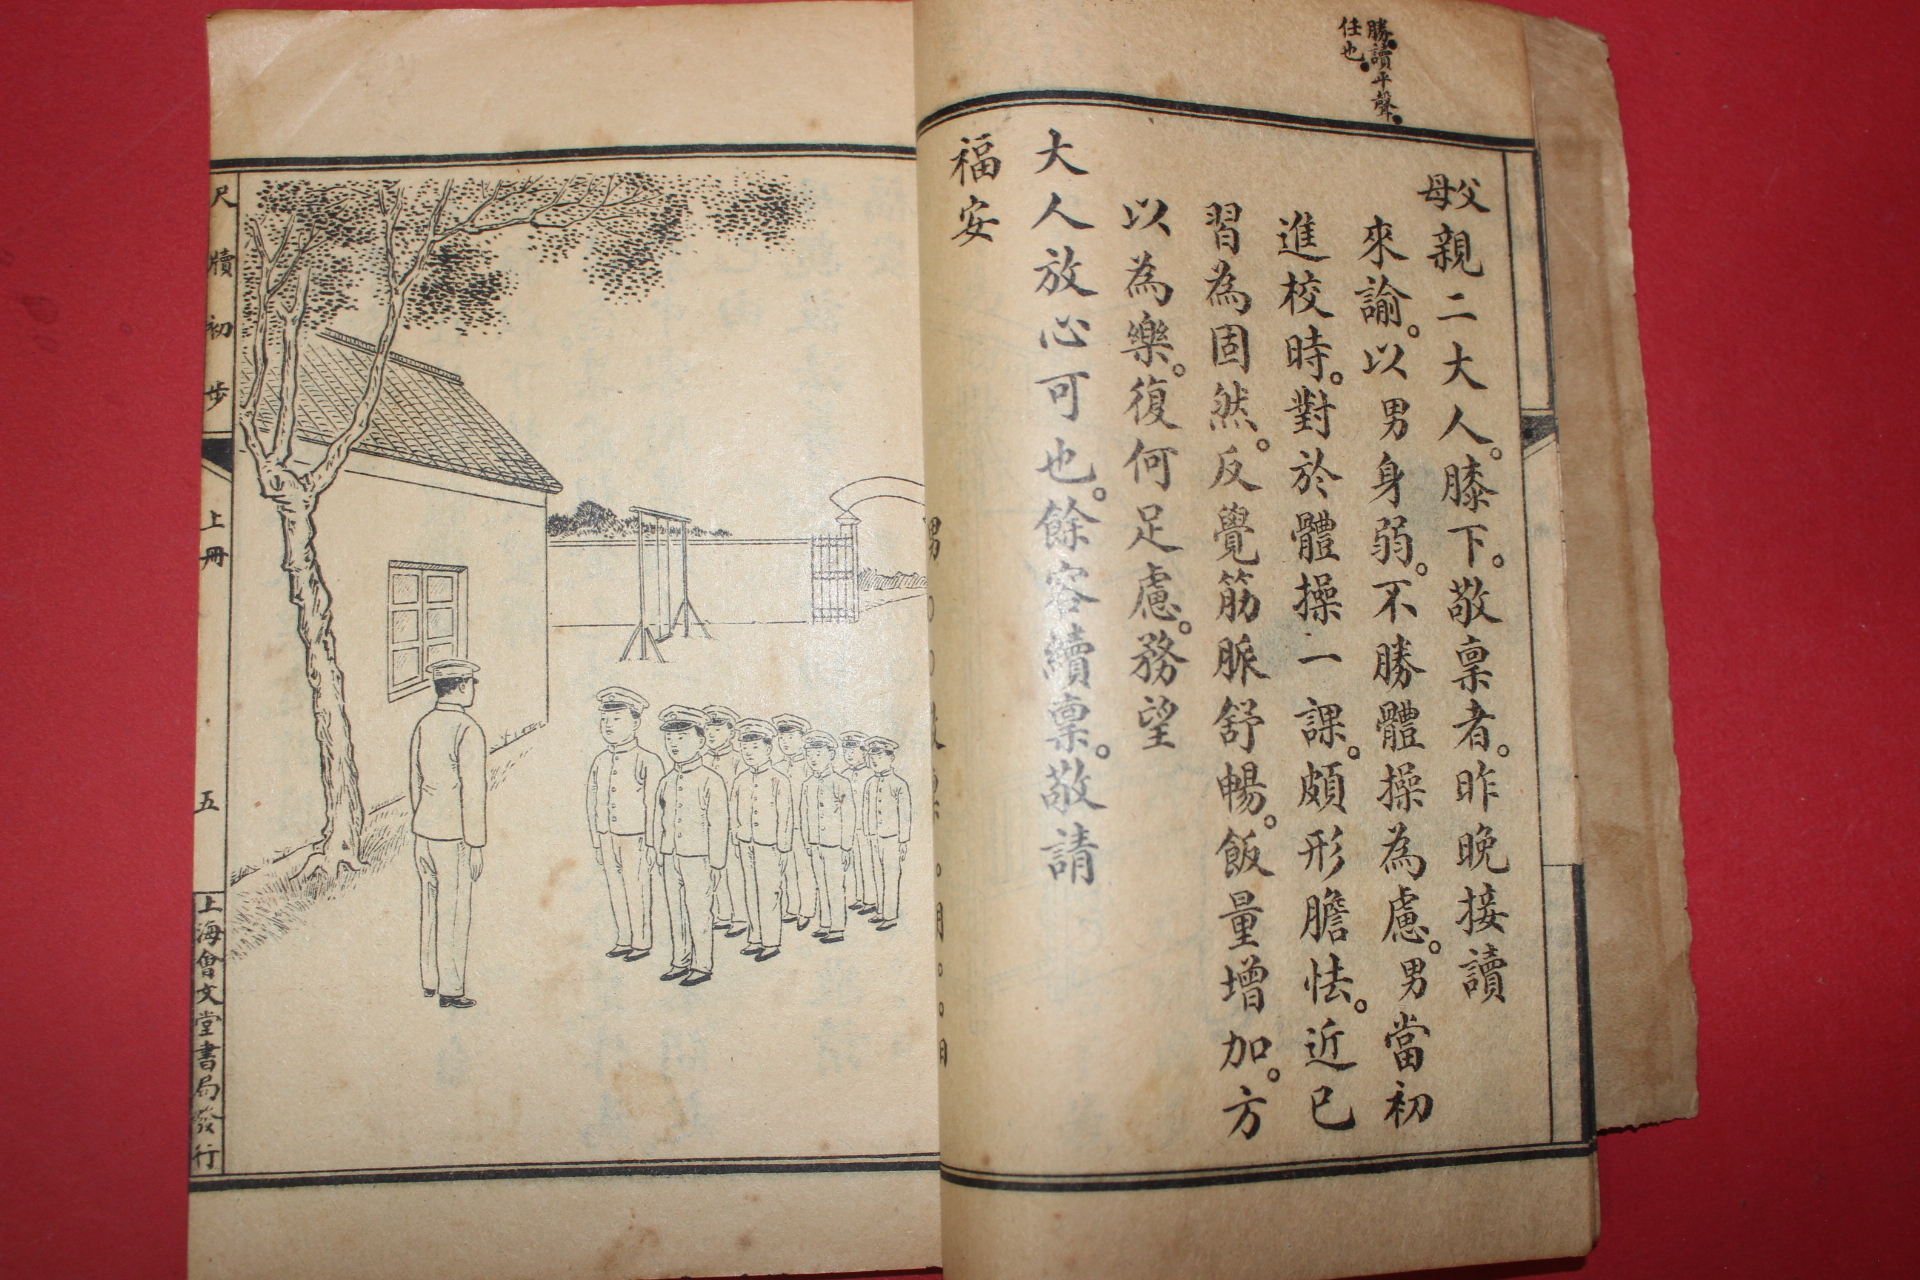 勝。讀平聲。
任也。
父母親二大人。膝下。敬稟者。昨晚接讀
來諭。以男身弱。不勝體操為慮。男當初
進校時。對於體操一課。頗形膽怯。近已
習為固然。反覺筋脈舒暢。飯量增加。方
以為樂。復何足慮。務望
大人放心可也。餘容續稟。敬請
福安
男〇〇敬稟 〇月〇〇日
尺牘初步 上冊 五 上海會文堂書局發行